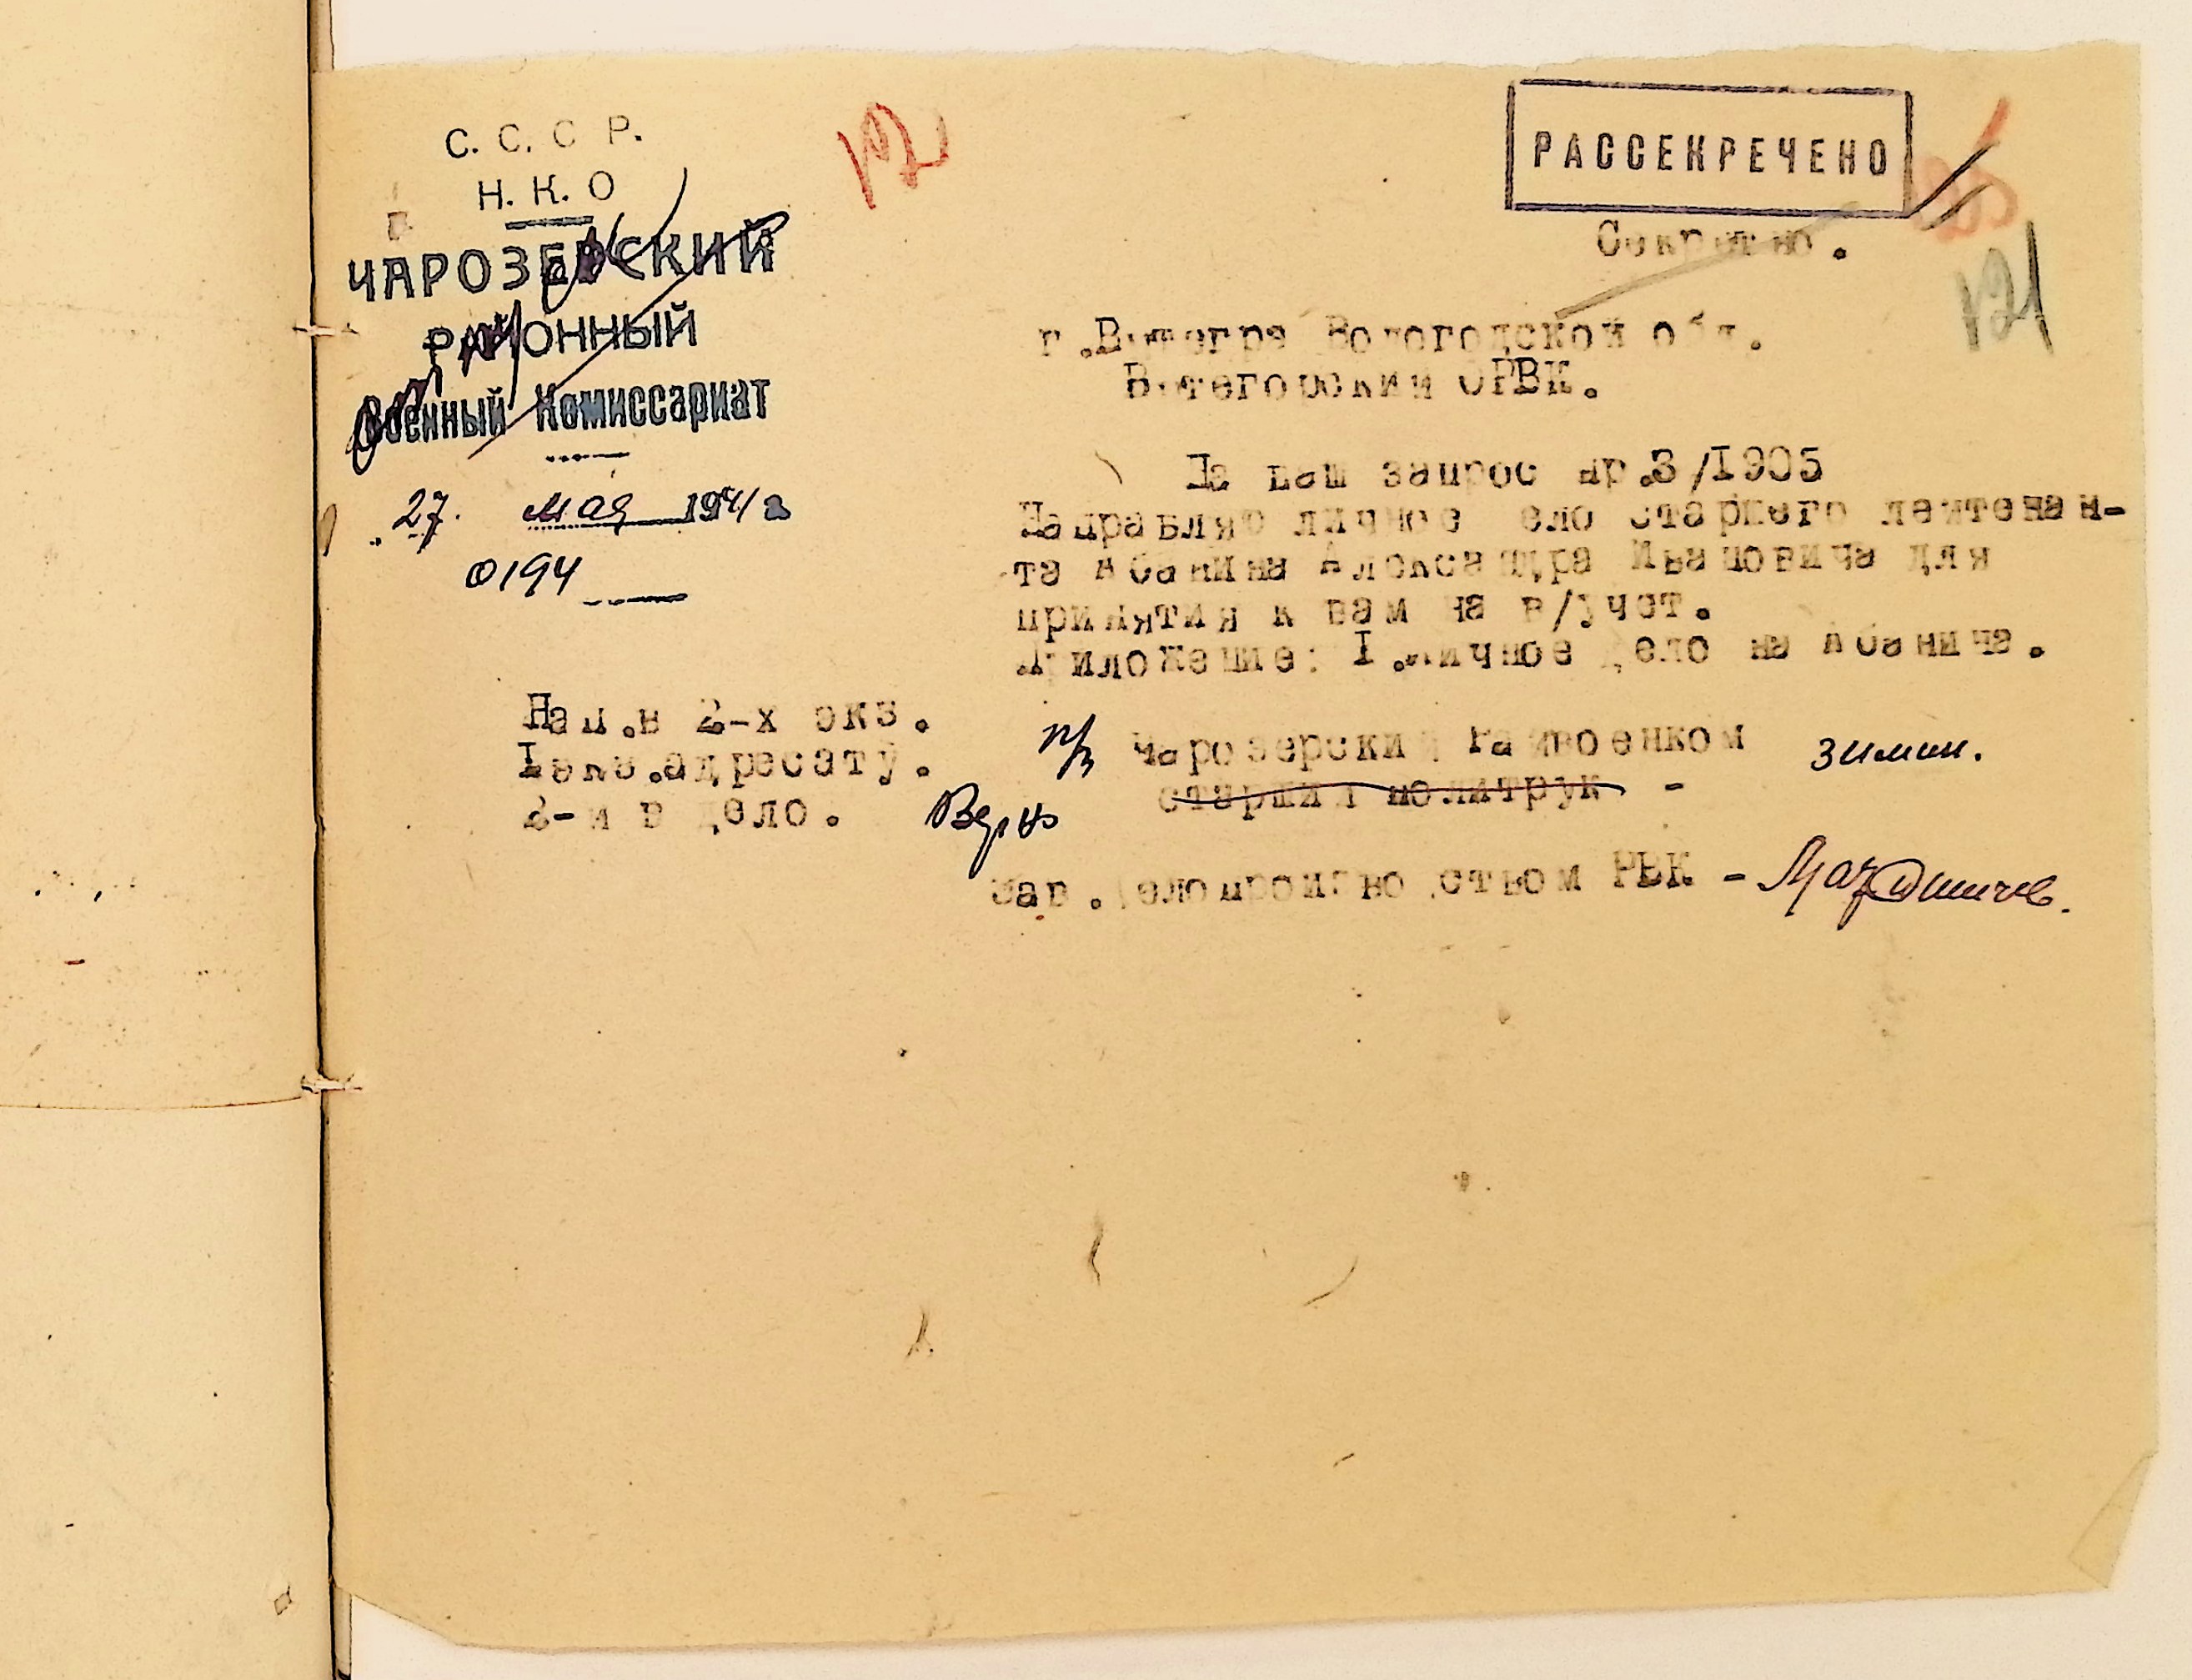 С. С. С Р.
Н. К. О
ЧАРОЗЕРСКИЙ
РАЙОННЫЙ
Военный Комиссариат
27. мая 1941 г
0194
РАССЕКРЕЧЕНО
Секретно.
121
г.Вытегра Вологодской обл.
Вытегорский ОРВК.
На ваш запрос нр.3/I905
Направляю личное дело старшего лейтенан-
та Абанина Александра Ивановича для
принятия к вам на в/учет.
Приложение: I.личное дело на Абанина.
Нап.в 2-х экз.
Iэкз.адресату.
2-й в дело.
п/п Чарозерский райвоенком зимин.
старший политрук -
Верно
Зав.делопроизводством РВК -